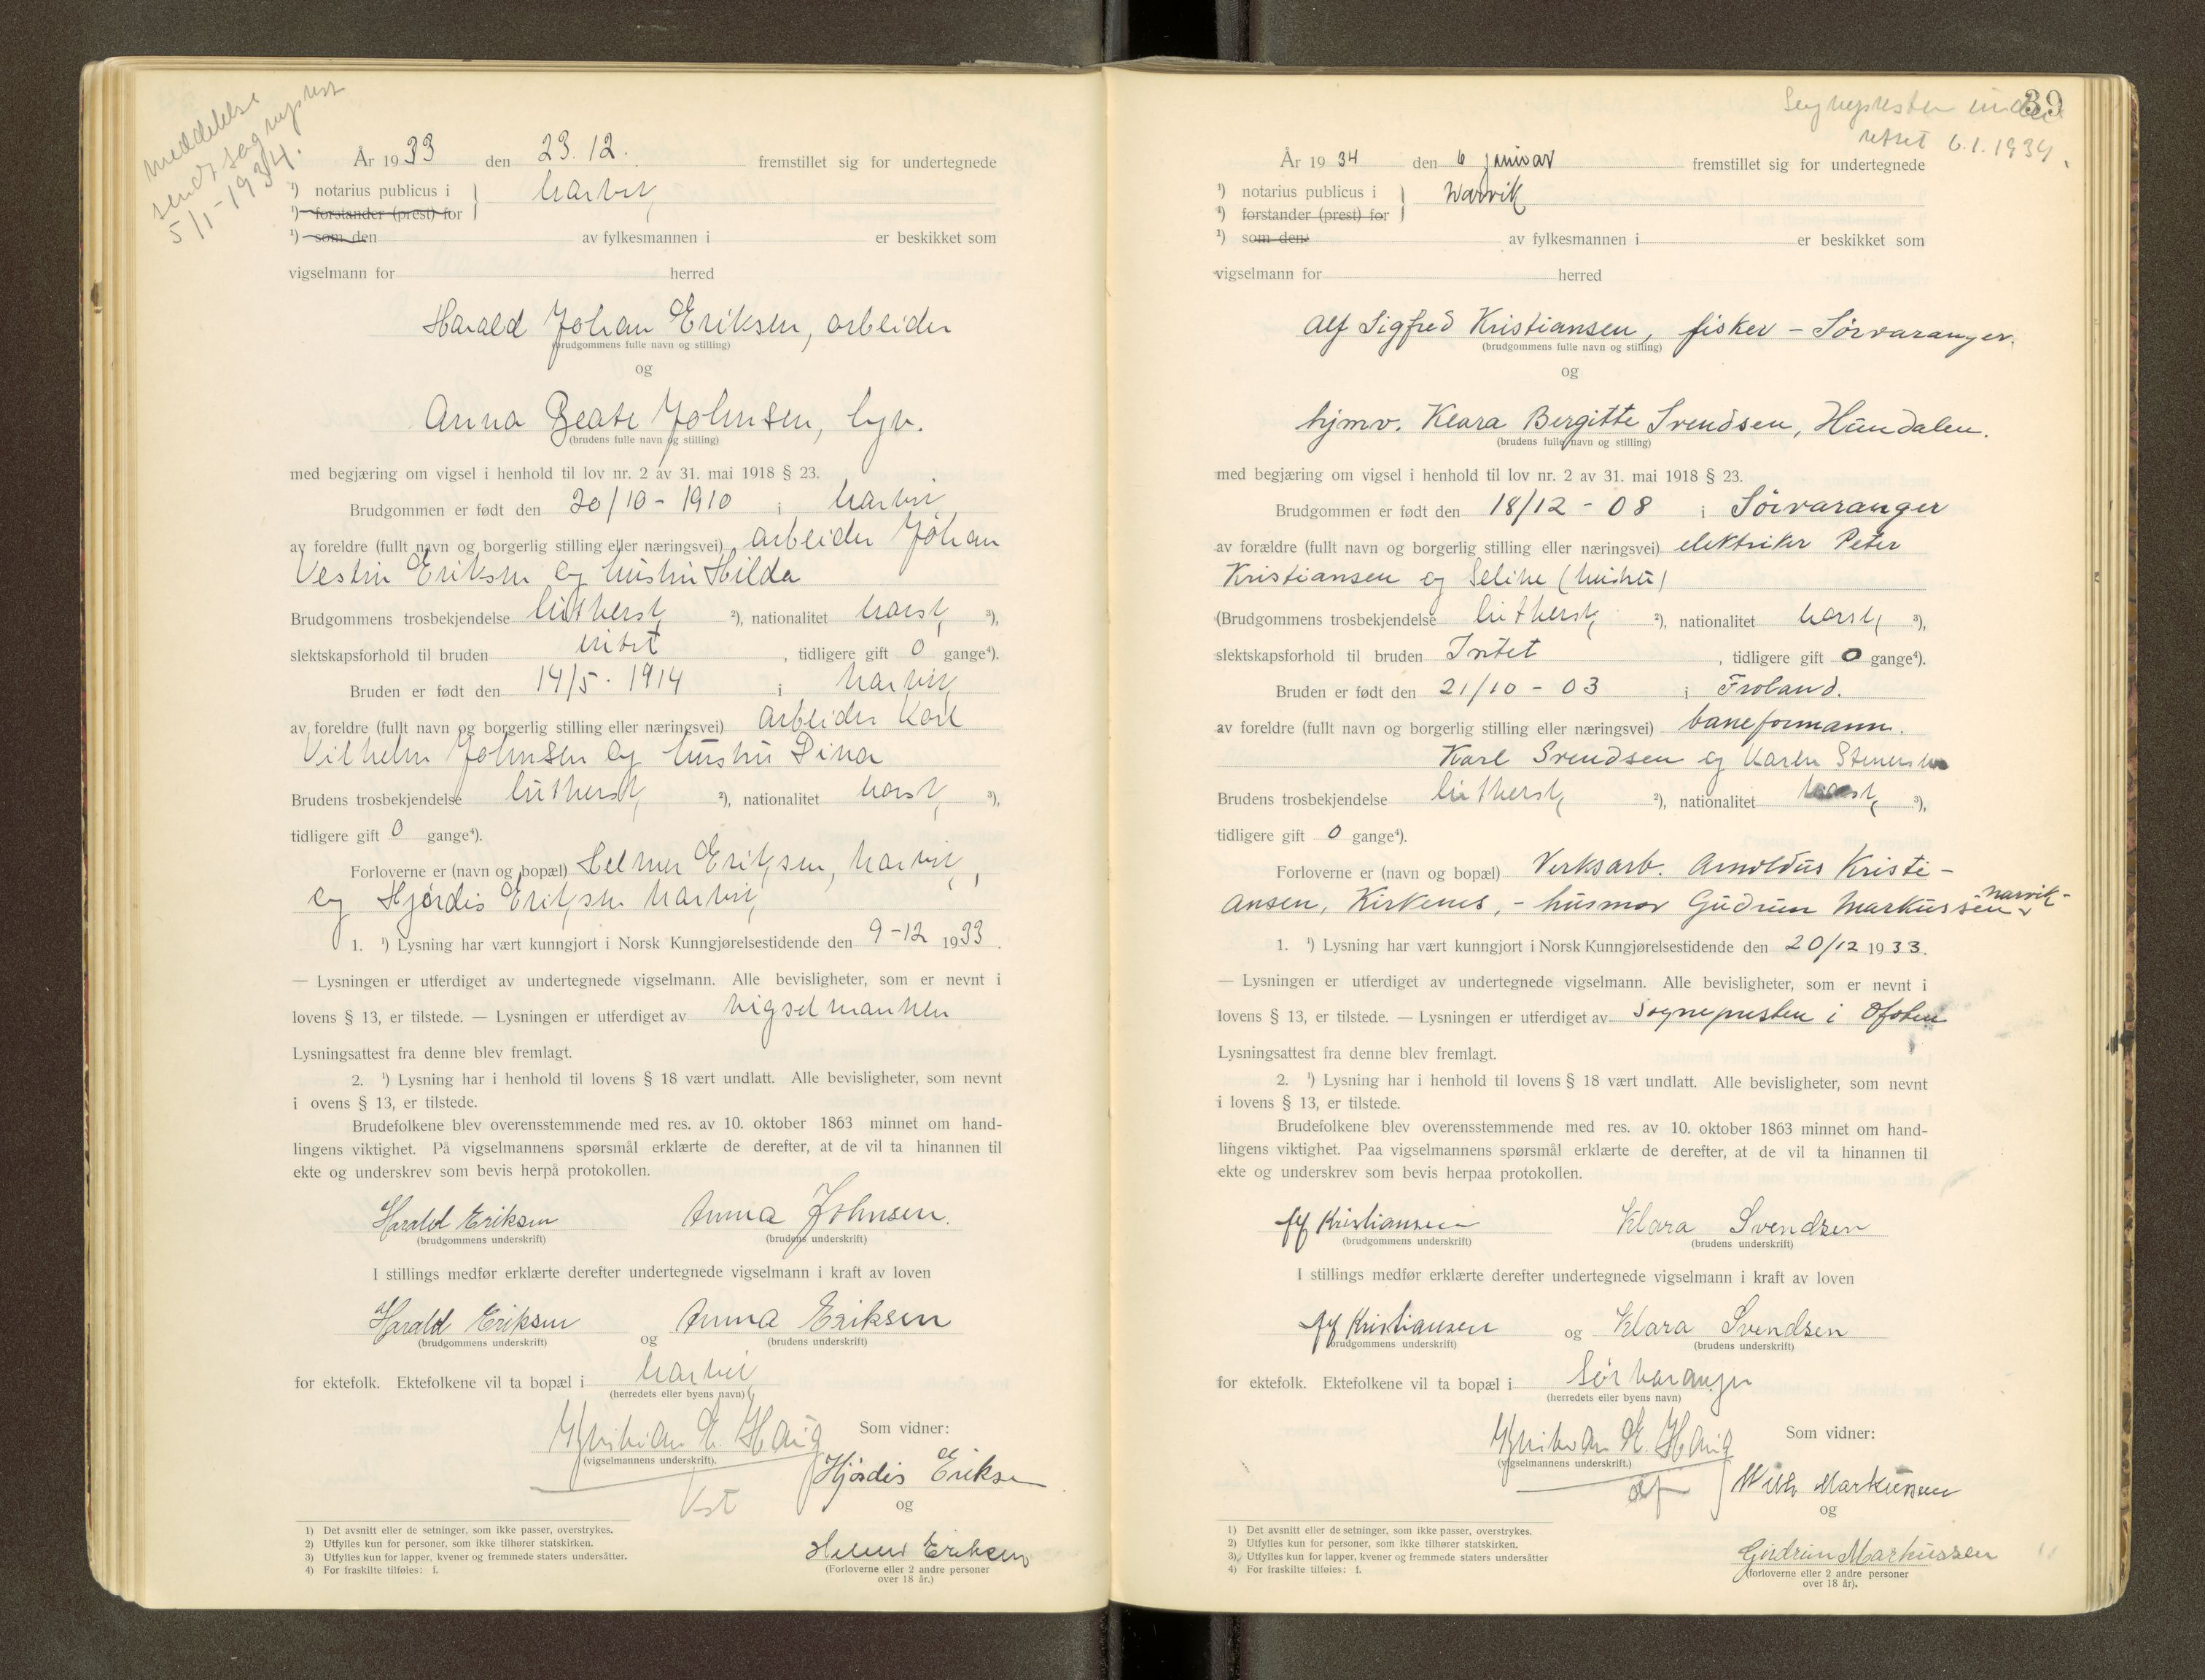 meddelelse
sendt sogneprest
5/1-1934.
År 1933 den 23.12. fremstillet sig for undertegnede
¹) notarius publicus i } Narvik
¹) forstander (prest) for
¹) som den av fylkesmannen i er beskikket som
vigselmann for herred
Harald Johan Eriksen, arbeider
(brudgommens fulle navn og stilling)
og
Anna Beate Johnsen, hjv.
(brudens fulle navn og stilling)
med begjæring om vigsel i henhold til lov nr. 2 av 31. mai 1918 § 23.
Brudgommen er født den 20/10 - 1910 i Narvik
av foreldre (fullt navn og borgerlig stilling eller næringsvei) arbeider Johan
Vestin Eriksen og hustru Hilda
Brudgommens trosbekjendelse luthersk ²), nationalitet norsk ³),
slektskapsforhold til bruden intet, tidligere gift 0 gange⁴).
Bruden er født den 14/5. 1914 i Narvik
av foreldre (fullt navn og borgerlig stilling eller næringsvei) arbeider Karl
Vilhelm Johnsen og hustru Dina
Brudens trosbekjendelse luthersk ²), nationalitet norsk ³),
tidligere gift 0 gange⁴).
Forloverne er (navn og bopæl) Helmer Eriksen, Narvik,
og Hjørdis Eriksen Narvik
1. ¹) Lysning har vært kunngjort i Norsk Kunngjørelsestidende den 9-12 1933.
— Lysningen er utferdiget av undertegnede vigselmann. Alle bevisligheter, som er nevnt i
lovens § 13, er tilstede. — Lysningen er utferdiget av vigselmannen
Lysningsattest fra denne blev fremlagt.
2. ¹) Lysning har i henhold til lovens § 18 vært undlatt. Alle bevisligheter, som nevnt
i ovens § 13, er tilstede.
Brudefolkene blev overensstemmende med res. av 10. oktober 1863 minnet om hand-
lingens viktighet. På vigselmannens spørsmål erklærte de derefter, at de vil ta hinannen til
ekte og underskrev som bevis herpå protokollen.
Harald Eriksen Anna Johnsen.
(brudgommens underskrift) (brudens underskrift)
I stillings medfør erklærte derefter undertegnede vigselmann i kraft av loven
Harald Eriksen og Anna Eriksen
(brudgommens underskrift) (brudens underskrift)
for ektefolk. Ektefolkene vil ta bopæl i Narvik
(herredets eller byens navn)
Kristian E. Haug Som vidner:
(vigselmannens underskrift).
Hjørdis Eriksen
Kst og
Helmer Eriksen
(Forloverne eller 2 andre personer
over 18 år.)
1) Det avsnitt eller de setninger, som ikke passer, overstrykes.
2) Utfylles kun for personer, som ikke tilhører statskirken.
3) Utfylles kun for lapper, kvener og fremmede staters undersåtter.
4) For fraskilte tilføies: f.
39
Sognepresten under
rettet 6.1.1934.
År 1934 den 6 januar fremstillet sig for undertegnede
¹) notarius publicus i } Narvik
¹) forstander (prest) for
¹) som den av fylkesmannen i er beskikket som
vigselmann for herred
Alf Sigfred Kristiansen, fisker - Sørvaranger.
(brudgommens fulle navn og stilling)
og
hjmv. Klara Bergitte Svendsen, Hundalen.
(brudens fulle navn og stilling)
med begjæring om vigsel i henhold til lov nr. 2 av 31. mai 1918 § 23.
Brudgommen er født den 18/12 - 08 i Sørvaranger
av forældre (fullt navn og borgerlig stilling eller næringsvei) elektriker Peter
Kristiansen og Seline (hustru)
(Brudgommens trosbekjendelse luthersk ²), nationalitet norsk ³),
slektskapsforhold til bruden Intet, tidligere gift 0 gange⁴).
Bruden er født den 21/10 - 03 i Froland.
av foreldre (fullt navn og borgerlig stilling eller næringsvei) baneformann.
Karl Svendsen og Karen
Brudens trosbekjendelse luthersk ²), nationalitet norsk ³),
tidligere gift 0 gange⁴).
Forloverne er (navn og bopæl) Verksarb. Arnoldus Kristi-
ansen, Kirkenes, - husmor Gudrun Markussen narvik -
1. ¹) Lysning har vært kunngjort i Norsk Kunngjørelsestidende den 20/12 1933.
— Lysningen er utferdiget av undertegnede vigselmann. Alle bevisligheter, som er nevnt i
lovens § 13, er tilstede. — Lysningen er utferdiget av Sognepresten i Ofoten
Lysningsattest fra denne blev fremlagt.
2. ¹) Lysning har i henhold til lovens § 18 vært undlatt. Alle bevisligheter, som nevnt
i lovens § 13, er tilstede.
Brudefolkene blev overensstemmende med res. av 10. oktober 1863 minnet om hand-
lingens viktighet. Paa vigselmannens spørsmål erklærte de derefter, at de vil ta hinannen til
ekte og underskrev som bevis herpaa protokollen.
Alf Kristiansen Klara Svendsen
(brudgommens underskrift) (brudens underskrift)
I stillings medfør erklærte derefter undertegnede vigselmann i kraft av loven
Alf Kristiansen og Klara Svendsen
(brudgommens underskrift) (brudens underskrift)
for ektefolk. Ektefolkene vil ta bopæl i Sørvaranger
(herredets eller byens navn)
Kristian E. Haug Som vidner:
(vigselmannens underskrift.)
Wilh Markussen
og
Gudrun Markussen
(forloverne eller 2 andre personer
over 18 år).
1) Det avsnitt eller de setninger, som ikke passer, overstrykes.
2) Utfylles kun for personer, som ikke tilhører statskirken.
3) Utfylles kun for lapper, kvener og fremmede staters undersåtter
4) For fraskilte tilføies: f.